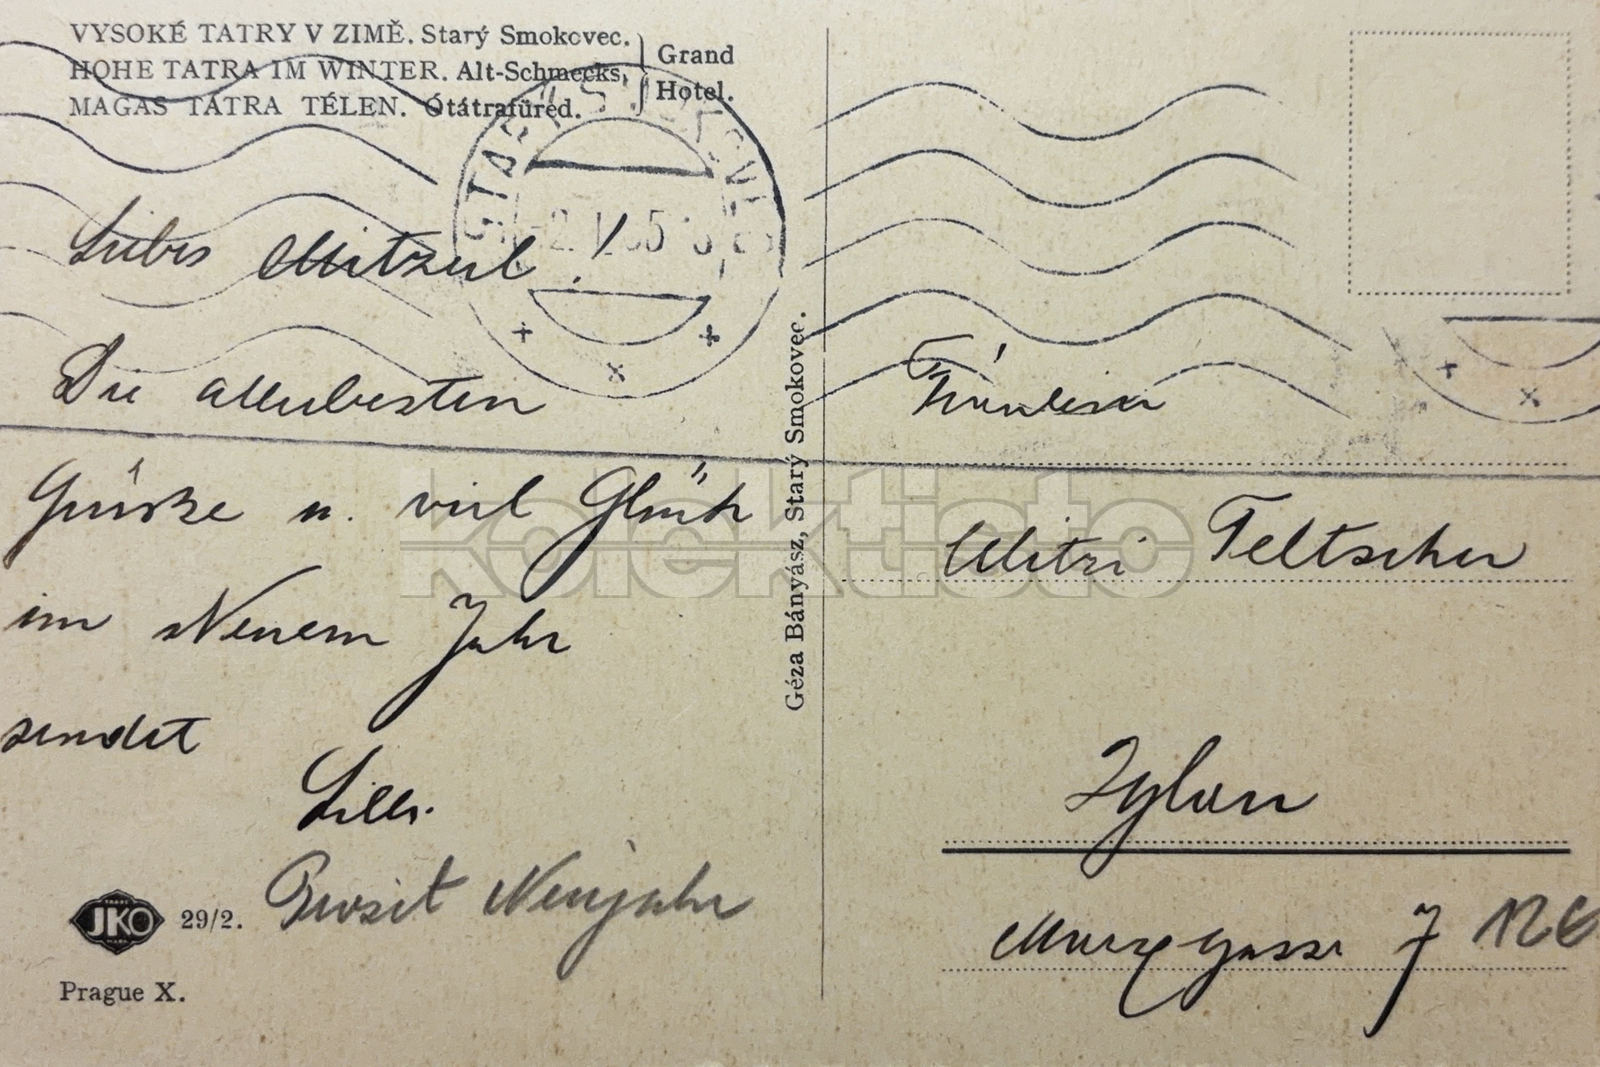 VYSOKÉ TATRY V ZIMĚ. Starý Smokovec.
HOHE TATRA IM WINTER. Alt-Schmecks,
MAGAS TÁTRA TÉLEN. Ótátrafüred.
Grand
Hotel.
STARÝ
Liebes Mitzerl
Die allerbesten
Grüsse u. viel Glück
im Neuem Jahr
sendet
Lilli.
Prosit Neujahr
JKO
29/2.
Prague X.
Géza Bányász, Starý Smokovec.
kolektisto
Fräulein
Mitzi Feltscher
gasse 7 126